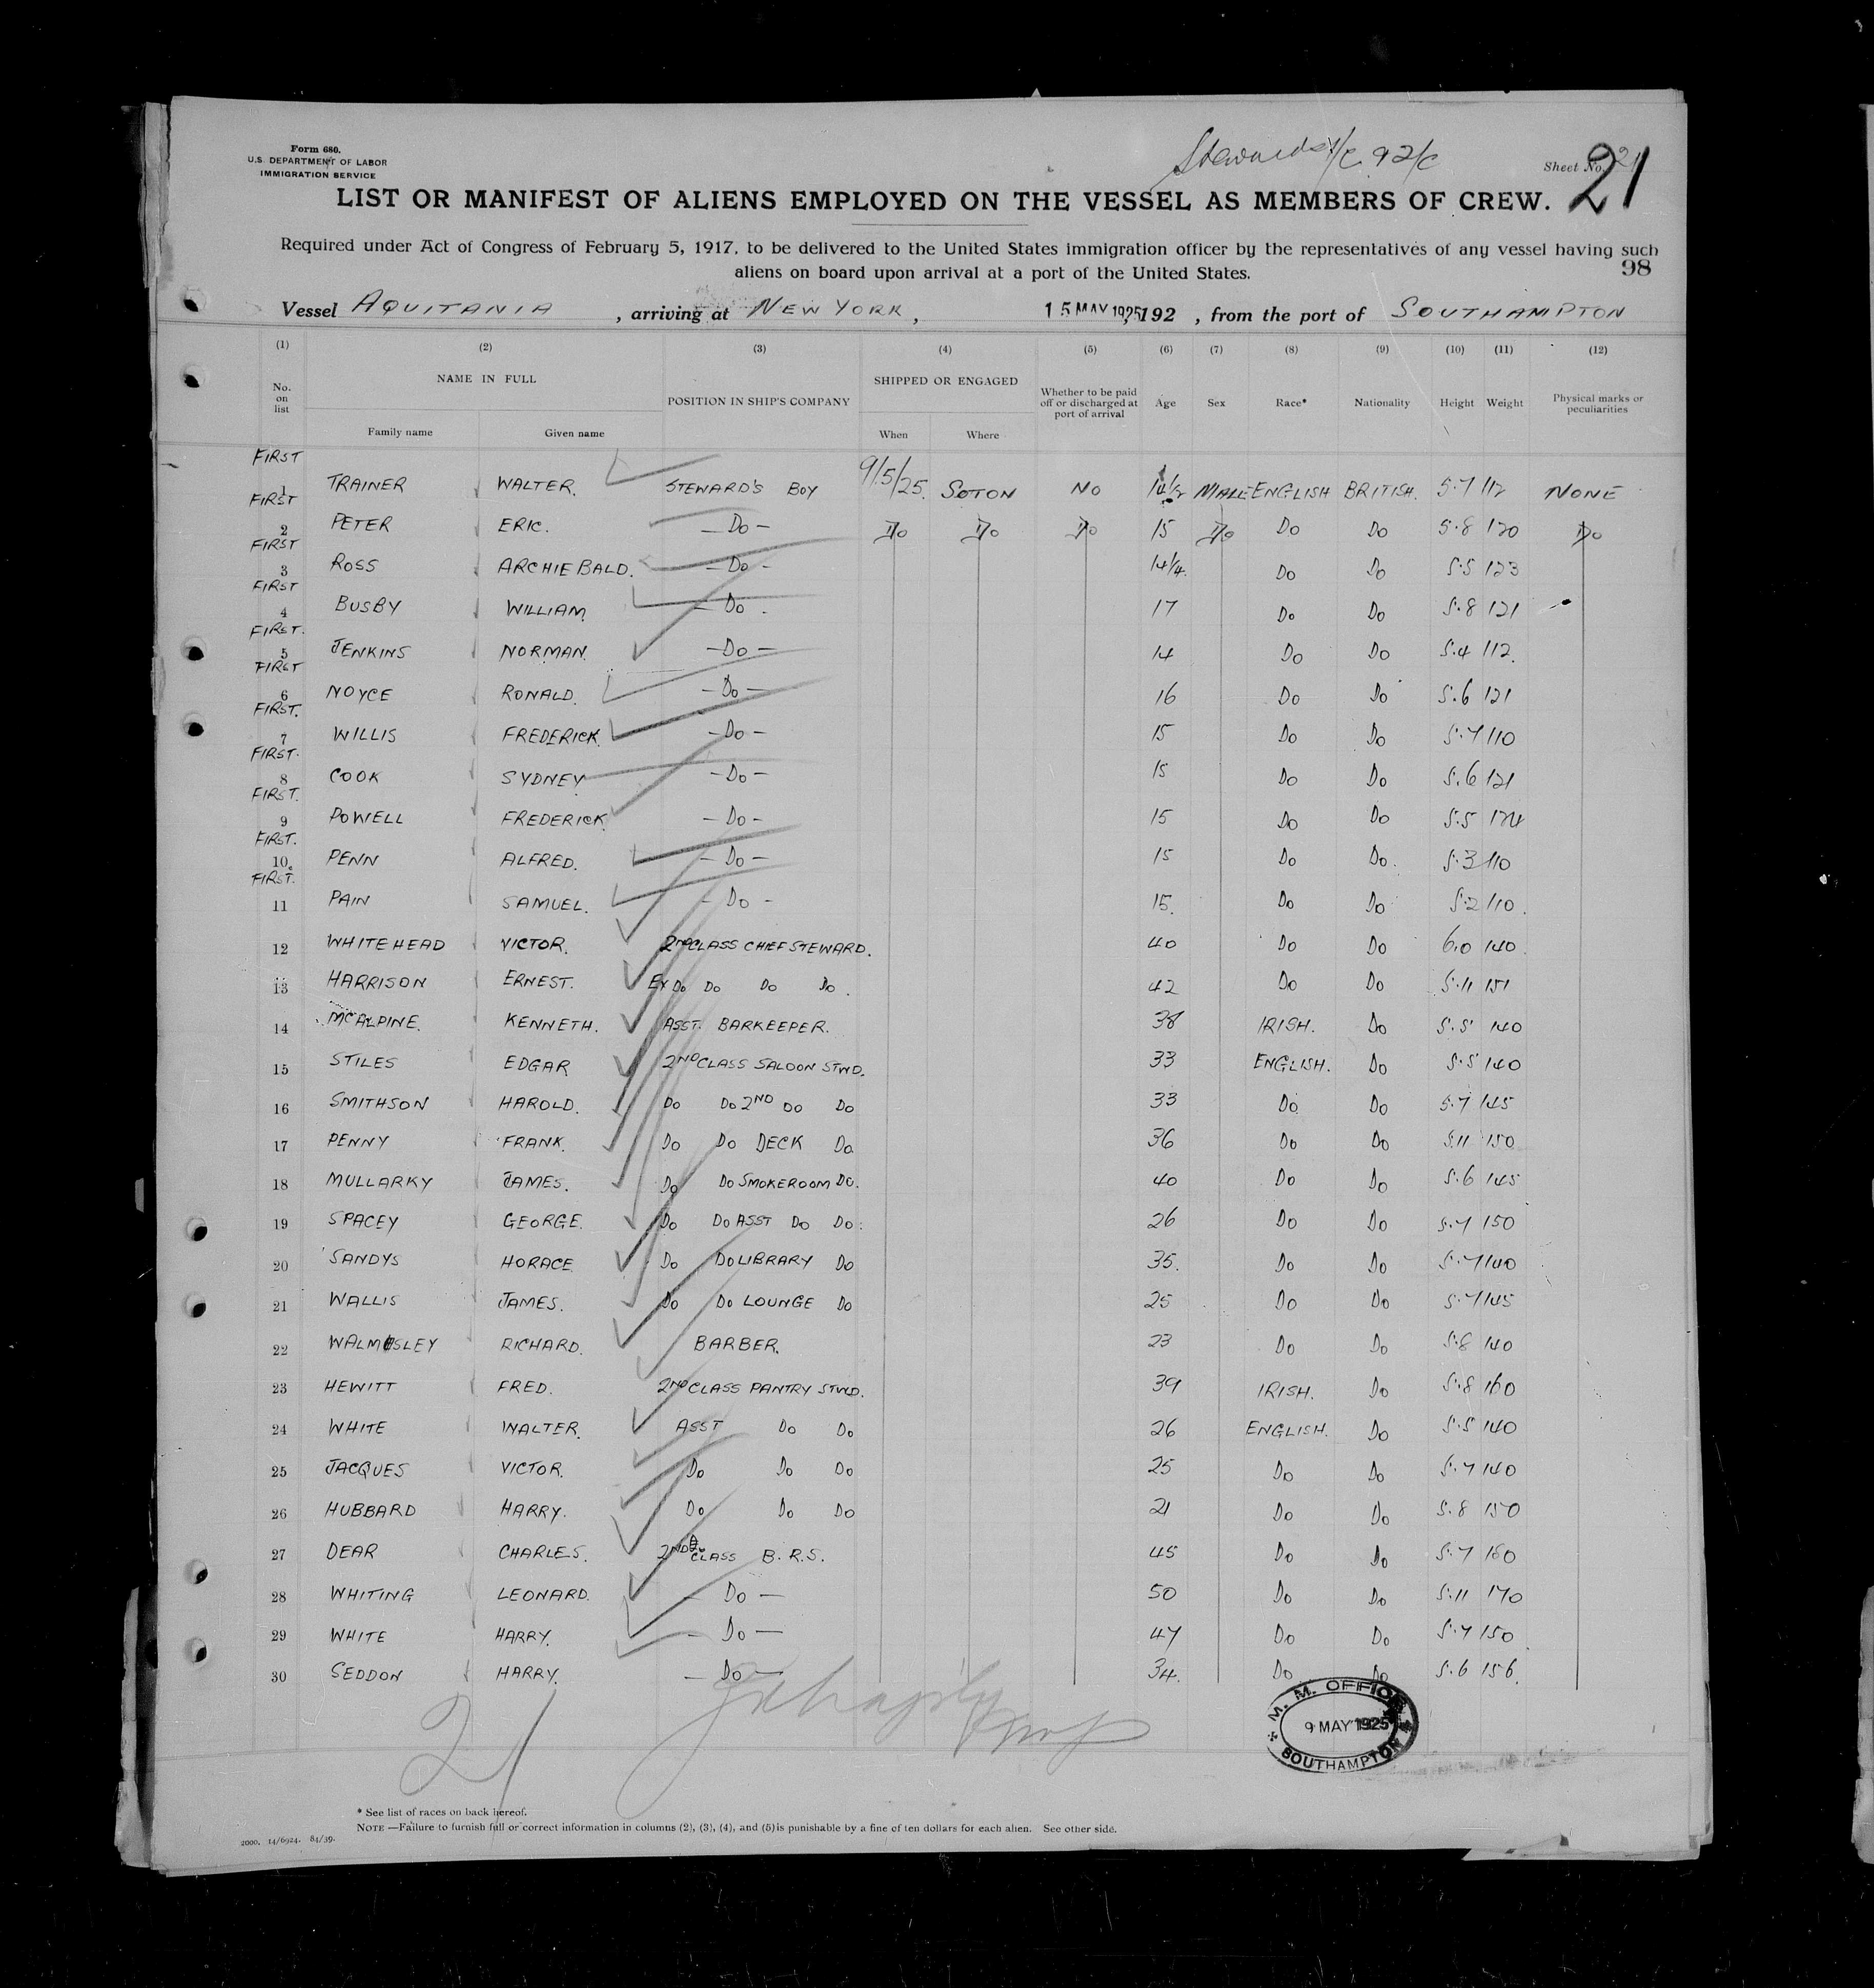 Form 680.
U.S. DEPARTMENT OF LABOR
IMMIGRATION SERVICE
Stewards 1/C & 2/C
Sheet No. 21
LIST OR MANIFEST OF ALIENS EMPLOYED ON THE VESSEL AS MEMBERS OF CREW.
Required under Act of Congress of February 5, 1917, to be delivered to the United States immigration officer by the representatives of any vessel having such
aliens on board upon arrival at a port of the United States.
98
Vessel AQUITANIA, arriving at NEW YORK, 15 MAY 1925 192 , from the port of SOUTHAMPTON
(1) (2) (3) (4) (5) (6) (7) (8) (9) (10) (11) (12)
No. on list NAME IN FULL POSITION IN SHIP'S COMPANY SHIPPED OR ENGAGED Whether to be paid off or discharged at port of arrival Age Sex Race* Nationality Height Weight Physical marks or peculiarities
Family name Given name When Where
FIRST
1 TRAINER WALTER. STEWARD'S BOY 9/5/25. SOTON NO 14½ MALE ENGLISH BRITISH. 5.7 112 NONE
FIRST
2 PETER ERIC. — Do — Do Do Do 15 Do Do Do 5.8 120 Do
FIRST
3 ROSS ARCHIEBALD. — Do — 14¼. Do Do 5.5 123
FIRST
4 BUSBY WILLIAM. — Do . 17 Do Do 5.8 121
FIRST.
5 JENKINS NORMAN. — Do — 14 Do Do 5.4 112.
FIRST
6 NOYCE RONALD. — Do — 16 Do Do 5.6 121
FIRST.
7 WILLIS FREDERICK. — Do — 15 Do Do 5.7 110
FIRST.
8 COOK SYDNEY — Do — 15 Do Do 5.6 121
FIRST.
9 POWELL FREDERICK — Do — 15 Do Do 5.5 124
FIRST.
10. PENN ALFRED. — Do — 15 Do Do. 5.3 110
FIRST.
11 PAIN SAMUEL. — Do — 15. Do Do 5.2 110.
12 WHITEHEAD VICTOR. 2ND CLASS CHIEF STEWARD. 40 Do Do 6.0 140
13 HARRISON ERNEST. Ex Do Do Do Do. 42 Do Do 5.11 151
14 MCALPINE. KENNETH. ASST. BARKEEPER. 38 IRISH. Do 5.5 140
15 STILES EDGAR 2ND CLASS SALOON STWD. 33 ENGLISH. Do 5.5 140
16 SMITHSON HAROLD. Do Do 2ND Do Do 33 Do Do 5.7 145
17 PENNY FRANK. Do Do DECK Do. 36 Do Do 5.11 150
18 MULLARKY JAMES. Do Do SMOKEROOM Do. 40 Do Do 5.6 145
19 SPACEY GEORGE. Do Do ASST Do Do. 26 Do Do 5.7 150
20 SANDYS HORACE Do Do LIBRARY Do 35. Do Do 5.7 140
21 WALLIS JAMES. Do Do LOUNGE Do 25 Do Do 5.7 145
22 WALMSLEY RICHARD. BARBER. 23 Do Do 5.8 140
23 HEWITT FRED. 2ND CLASS PANTRY STWD. 39 IRISH. Do 5.8 160
24 WHITE WALTER. ASST Do Do 26 ENGLISH. Do 5.5 140
25 JACQUES VICTOR. Do Do Do 25 Do Do 5.7 140
26 HUBBARD HARRY. Do Do Do 21 Do Do 5.8 150
27 DEAR CHARLES. 2ND CLASS B.R.S. 45 Do Do 5.7 160
28 WHITING LEONARD. — Do — 50 Do Do 5.11 170
29 WHITE HARRY. — Do — 47 Do Do 5.7 150
30 SEDDON HARRY. — Do — 34. Do Do 5.6 156.
21
M. M. OFFICE
9 MAY 1925
SOUTHAMPTON
* See list of races on back hereof.
NOTE —Failure to furnish full or correct information in columns (2), (3), (4), and (5) is punishable by a fine of ten dollars for each alien. See other side.
2000. 14/6924. 84/39.